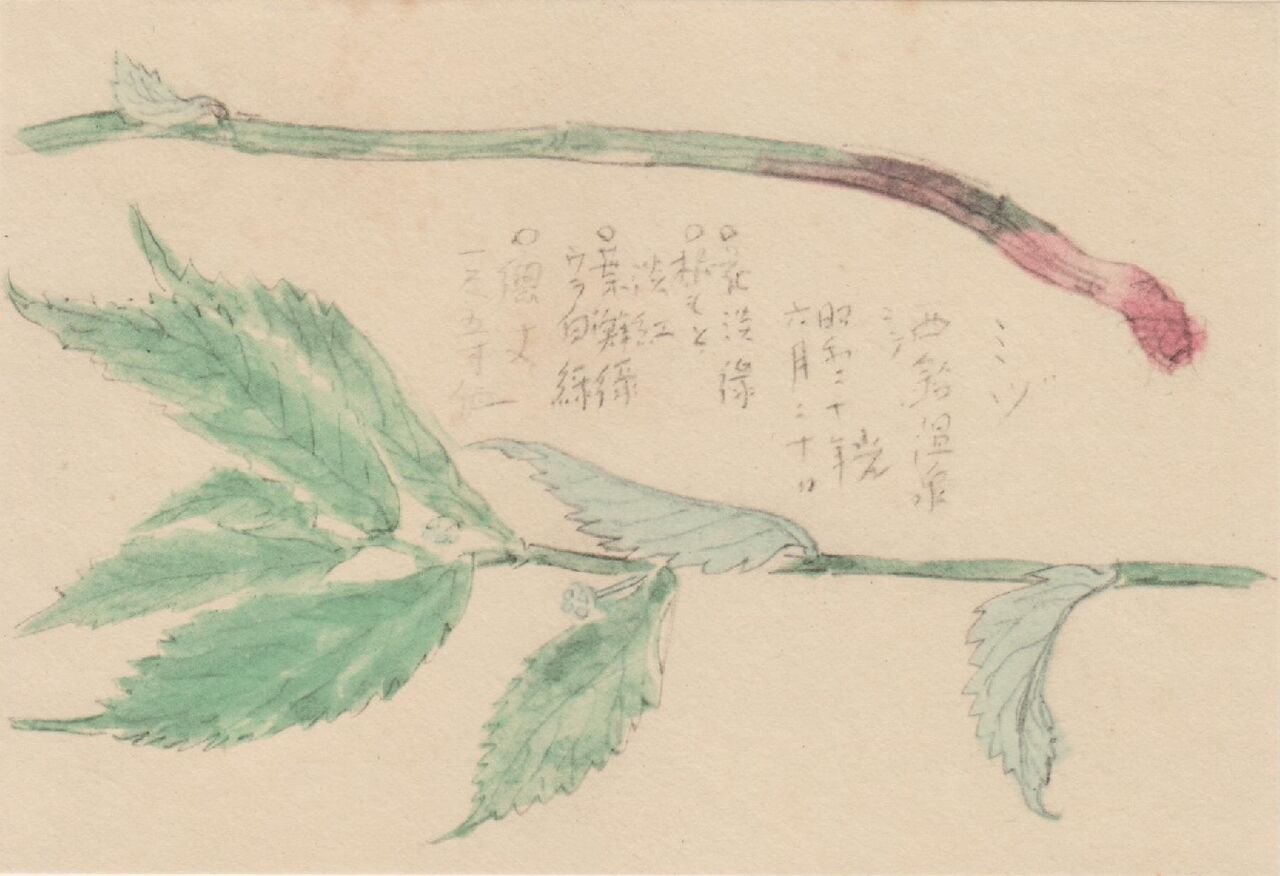 ミヅ
西鉛温泉
ニテ 光
昭和二十年
六月二十日
○花淡緑
○根もと
淡紅
○葉鮮緑
ウラ白緑
一尺五寸位